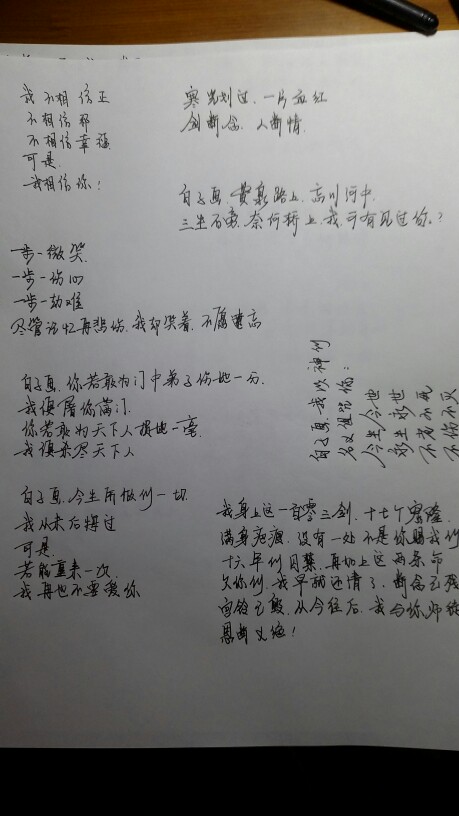 我不相信正
不相信邪
不相信幸福
可是
我相信你！
寒光划过，一片血红
剑断念，人断情
白子画，黄泉路上，忘川河中
三生石旁，奈何桥上，我可有见过你？
一步一微笑
一步一伤心
一步一劫难
尽管记忆再悲伤，我却笑着，不愿遗忘
白子画，你若敢为门中弟子伤她一分
我便屠你满门
你若敢为天下人损她一毫
我便杀尽天下人
白子画，我以神的
名义诅咒你：
今生今世
永生永世
不老不死
不伤不灭
白子画，今生所做的一切
我从未后悔过
可是
若能重来一次
我再也不要爱你
我身上这一百零三剑，十七个窟窿
满身疤痕，没有一处不是你赐我的
十六年的囚禁，再加上这两条命
欠你的，我早就还清了，断念已残
宫铃已毁，从今往后，我与你师徒
恩断义绝！